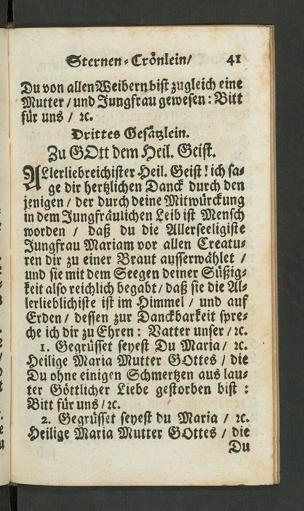 Sternen-Crönlein/ 41
Du von allen Weibern bist zugleich eine
Mutter / und Jungfrau gewesen : Bitt
für uns / ꝛc.
Drittes Gesätzlein.
Zu GOtt dem Heil. Geist.
ALlerliebreichister Heil. Geist! ich sa-
ge dir hertzlichen Danck durch den
jenigen / der durch deine Mitwürckung
in dem Jungfräulichen Leib ist Mensch
worden / daß du die Allerseeligiste
Jungfrau Mariam vor allen Creatu-
ren dir zu einer Braut ausserwählet /
und sie mit dem Seegen deiner Süßig-
keit also reichlich begabt / daß sie die Al-
lerlieblichiste ist im Himmel / und auf
Erden / dessen zur Danckbarkeit spre-
che ich dir zu Ehren : Vatter unser / ꝛc.
1. Gegrüsset seyest Du Maria / ꝛc.
Heilige Maria Mutter GOttes / die
Du ohne einigen Schmertzen aus lau-
ter Göttlicher Liebe gestorben bist :
Bitt für uns / ꝛc.
2. Gegrüsset seyest du Maria / ꝛc.
Heilige Maria Mutter GOttes / die
Du